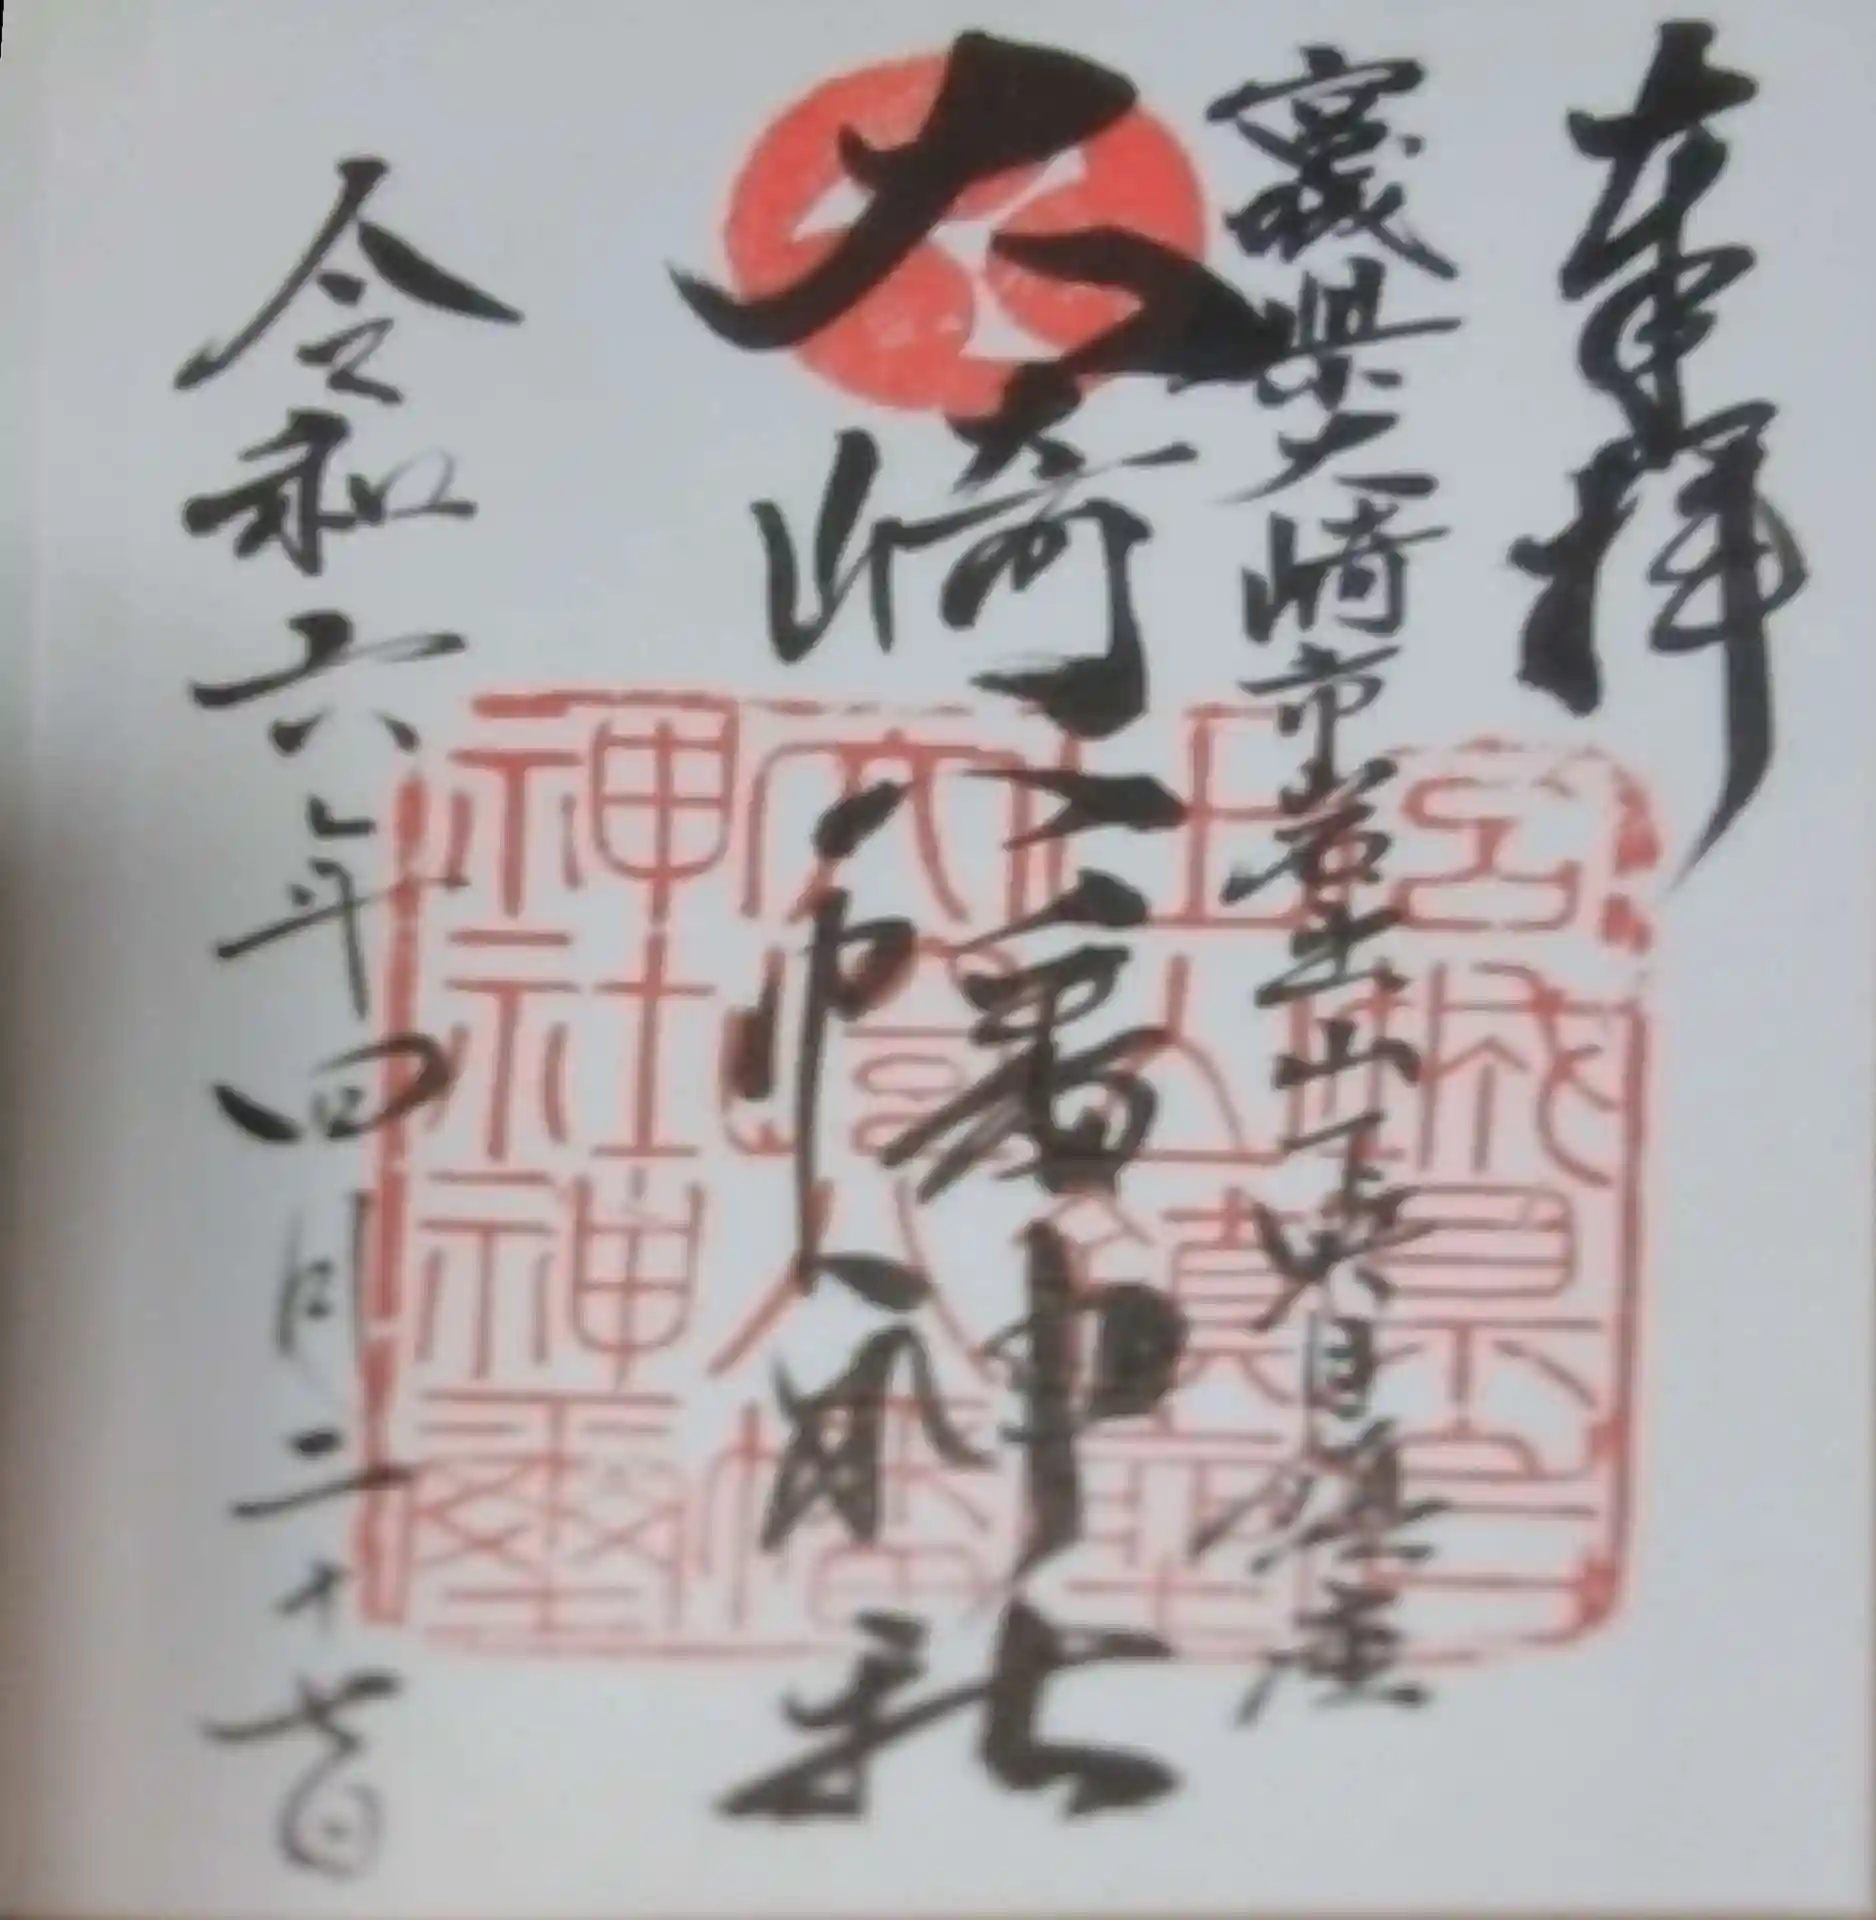 奉拝
宮城県大崎市岩出山鎮座
大崎八幡神社
令和六年四月二十七日
大崎八幡
神社神璽